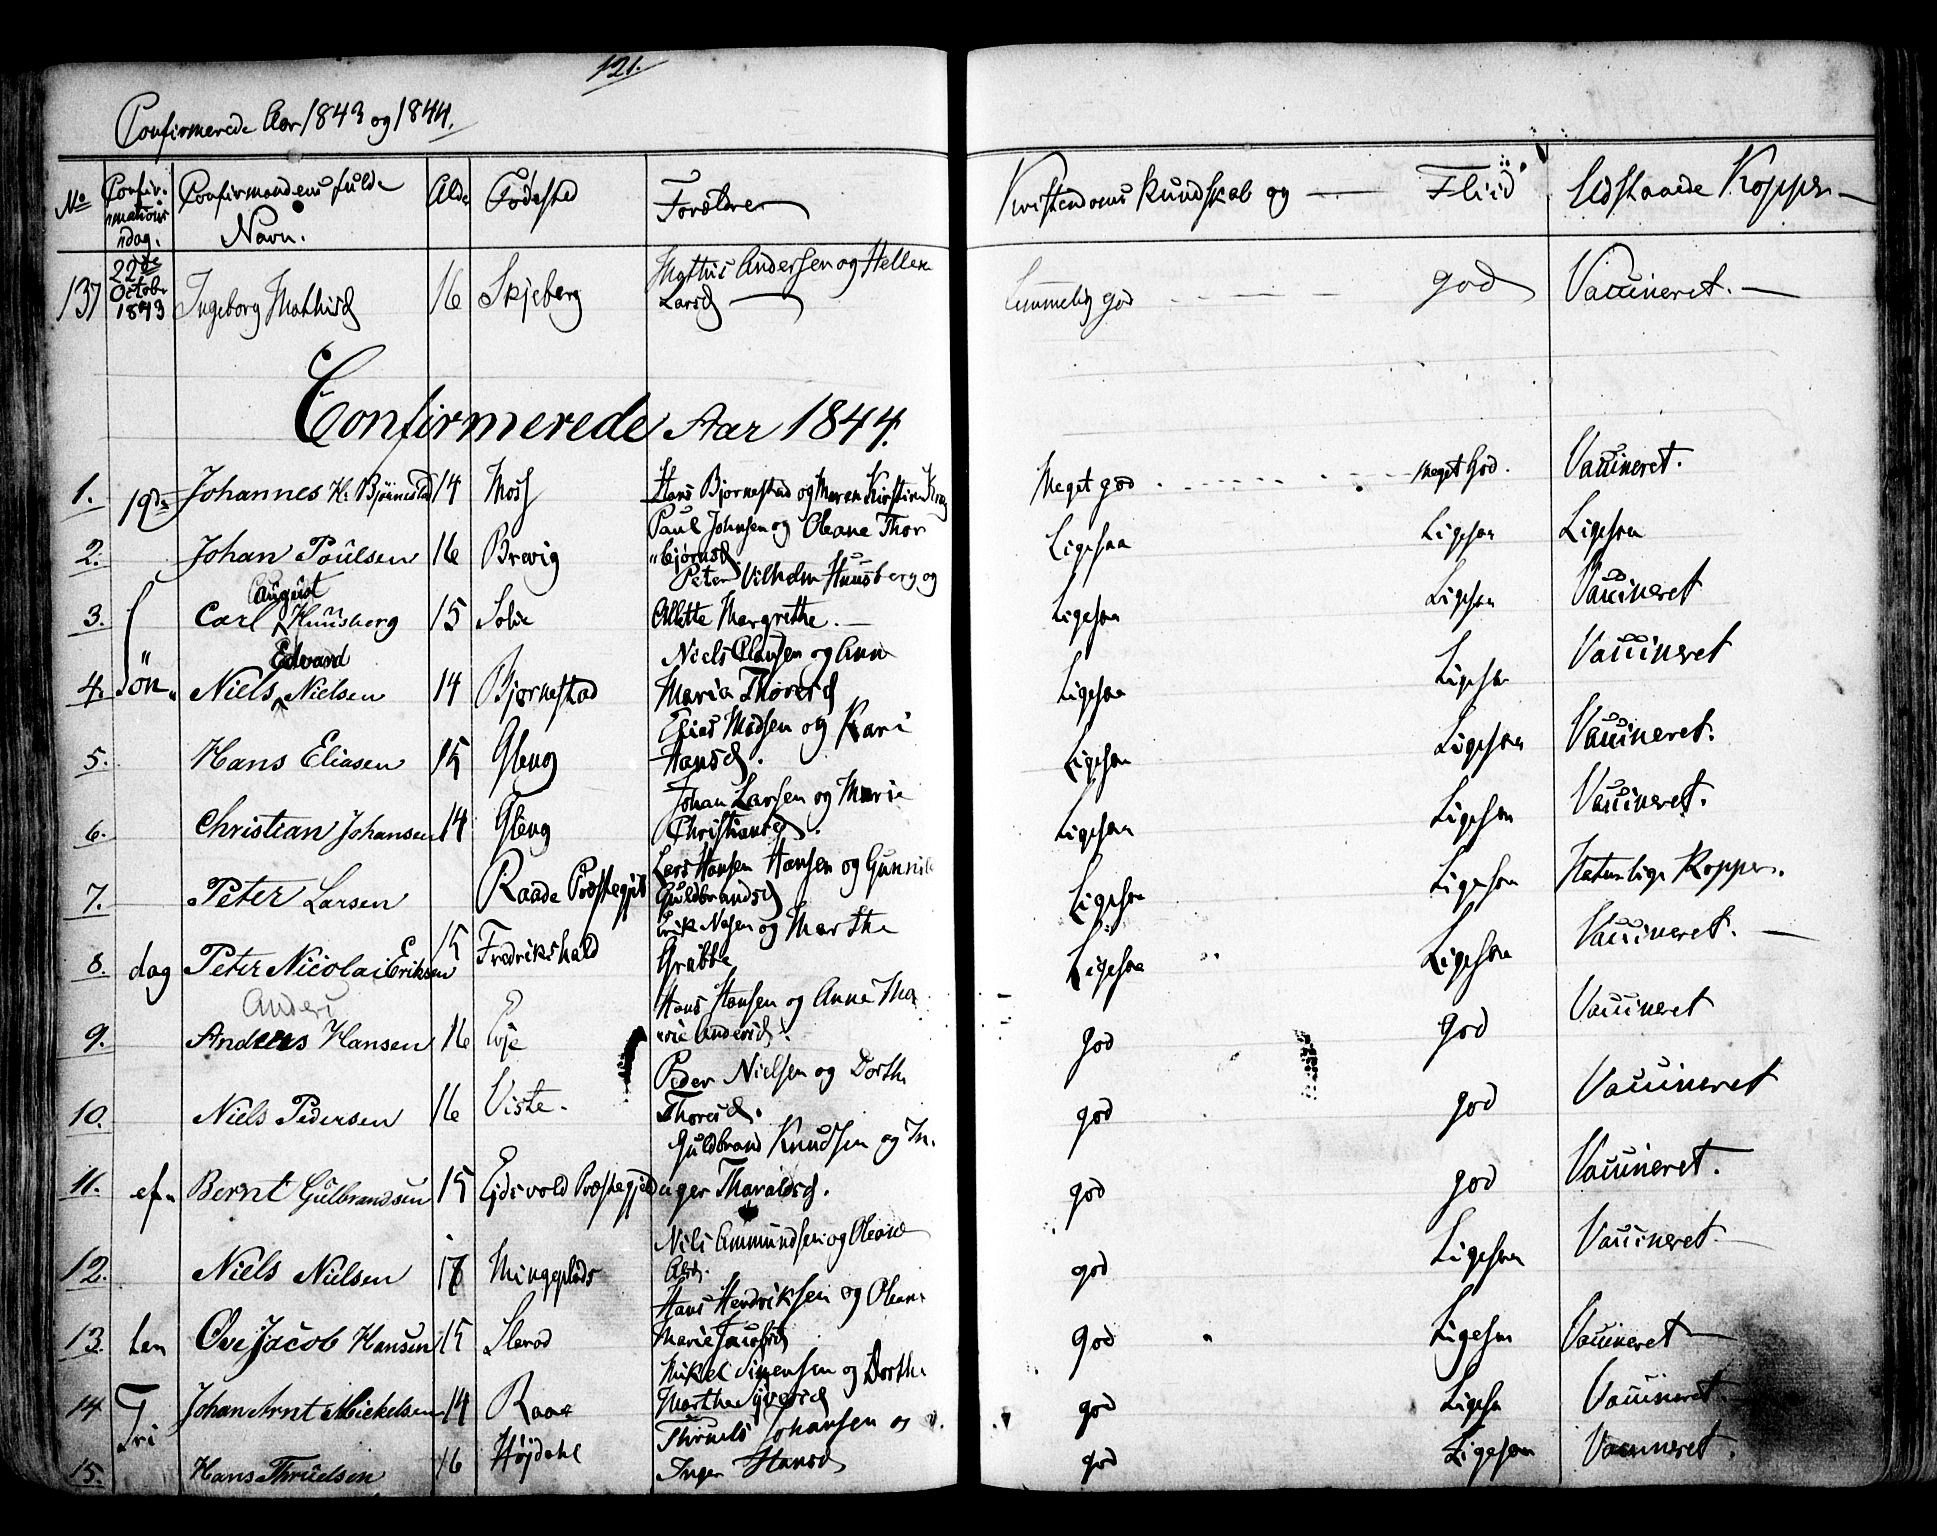 121.
Confirmerede Aar 1843 og 1844.
No Confirmationsdag. Confirmandens fulde Navn. Alder Fødested Forældre Kristendoms Kundskab og Fliid Udstaaede Kopper
137 22de Octobr 1843 Ingeborg Mathisd 16 Skjeberg Mathis Andersen og Hellene Larsd temmelig god god Vaccineret.
Confirmerede Aar 1844.
1. 19de Johannes H. Bjørnestad 14 Moss Hans Bjørnestad og Maren Kirstine Meget god meget God. Vaccineret.
2. Johan Poulsen 16 Brevig Paul Johnsen og Oleane Thorbjørnsd. Ligesaa Ligesaa Ligesaa
3. Carl August Huusberg 15 Solie Peter Vilhelm Huusberg og Alette Margrethe. Ligesaa Ligesaa Vaccineret
4. Søn„ Niels Edvard Nielsen 14 Bjørnestad Niels Olausen og Ann Maria Thoresd Ligesaa Ligesaa Vaccineret
5. Hans Eliasen 15 Gleng Elias Madsen og Kari Hansd. Ligesaa Ligesaa Vaccineret.
6. Christian Johansen 14 Gleng Johan Larsen og Marie Christiansd. Ligesaa Ligesaa Vaccineret.
7. Peter Larsen Raade Præstegjeld Lars Hansen Hansen og Gunnild Guldbrandsd Ligesaa Ligesaa Naturlige Kopper.
8. dag Peter Nicolai Eriksen 15 Fredrikshald Erik og Marthe Grabbe Ligesaa Ligesaa Vaccineret.
Anders
9. Anders Hansen 16 Evje Hans Hansen og Anne Marie Andersd. god god Vaccineret
10. Niels Pedersen 16 Viste. Peder Nielsen og Dorthe Thoresd. god god Vaccineret
11. ef„ Bernt Gulbrandsen 15 Ejdsvold Præstegjeld Guldbrand Knudsen og Inger Tharaldsd. god god Vaccineret.
12. Niels Nielsen 17 Mingeplads Nils Ammundsen og Oleane Olsd. god Ligesaa Vaccineret.
13. ter Ove Jacob Hansen 15 Slevod Hans Hendriksen og Oleane Marie Jacobsd god Ligesaa Vaccineret
14 Tri Johan Arnt Mickelsen 14 Raae Mikel Simensen og Dorthe Marthe Syversd god Ligesaa Vaccineret.
15. Hans Thruelsen 16 Højdahl Thruels Johansen og Inger Hansd god Ligesaa Vaccineret.